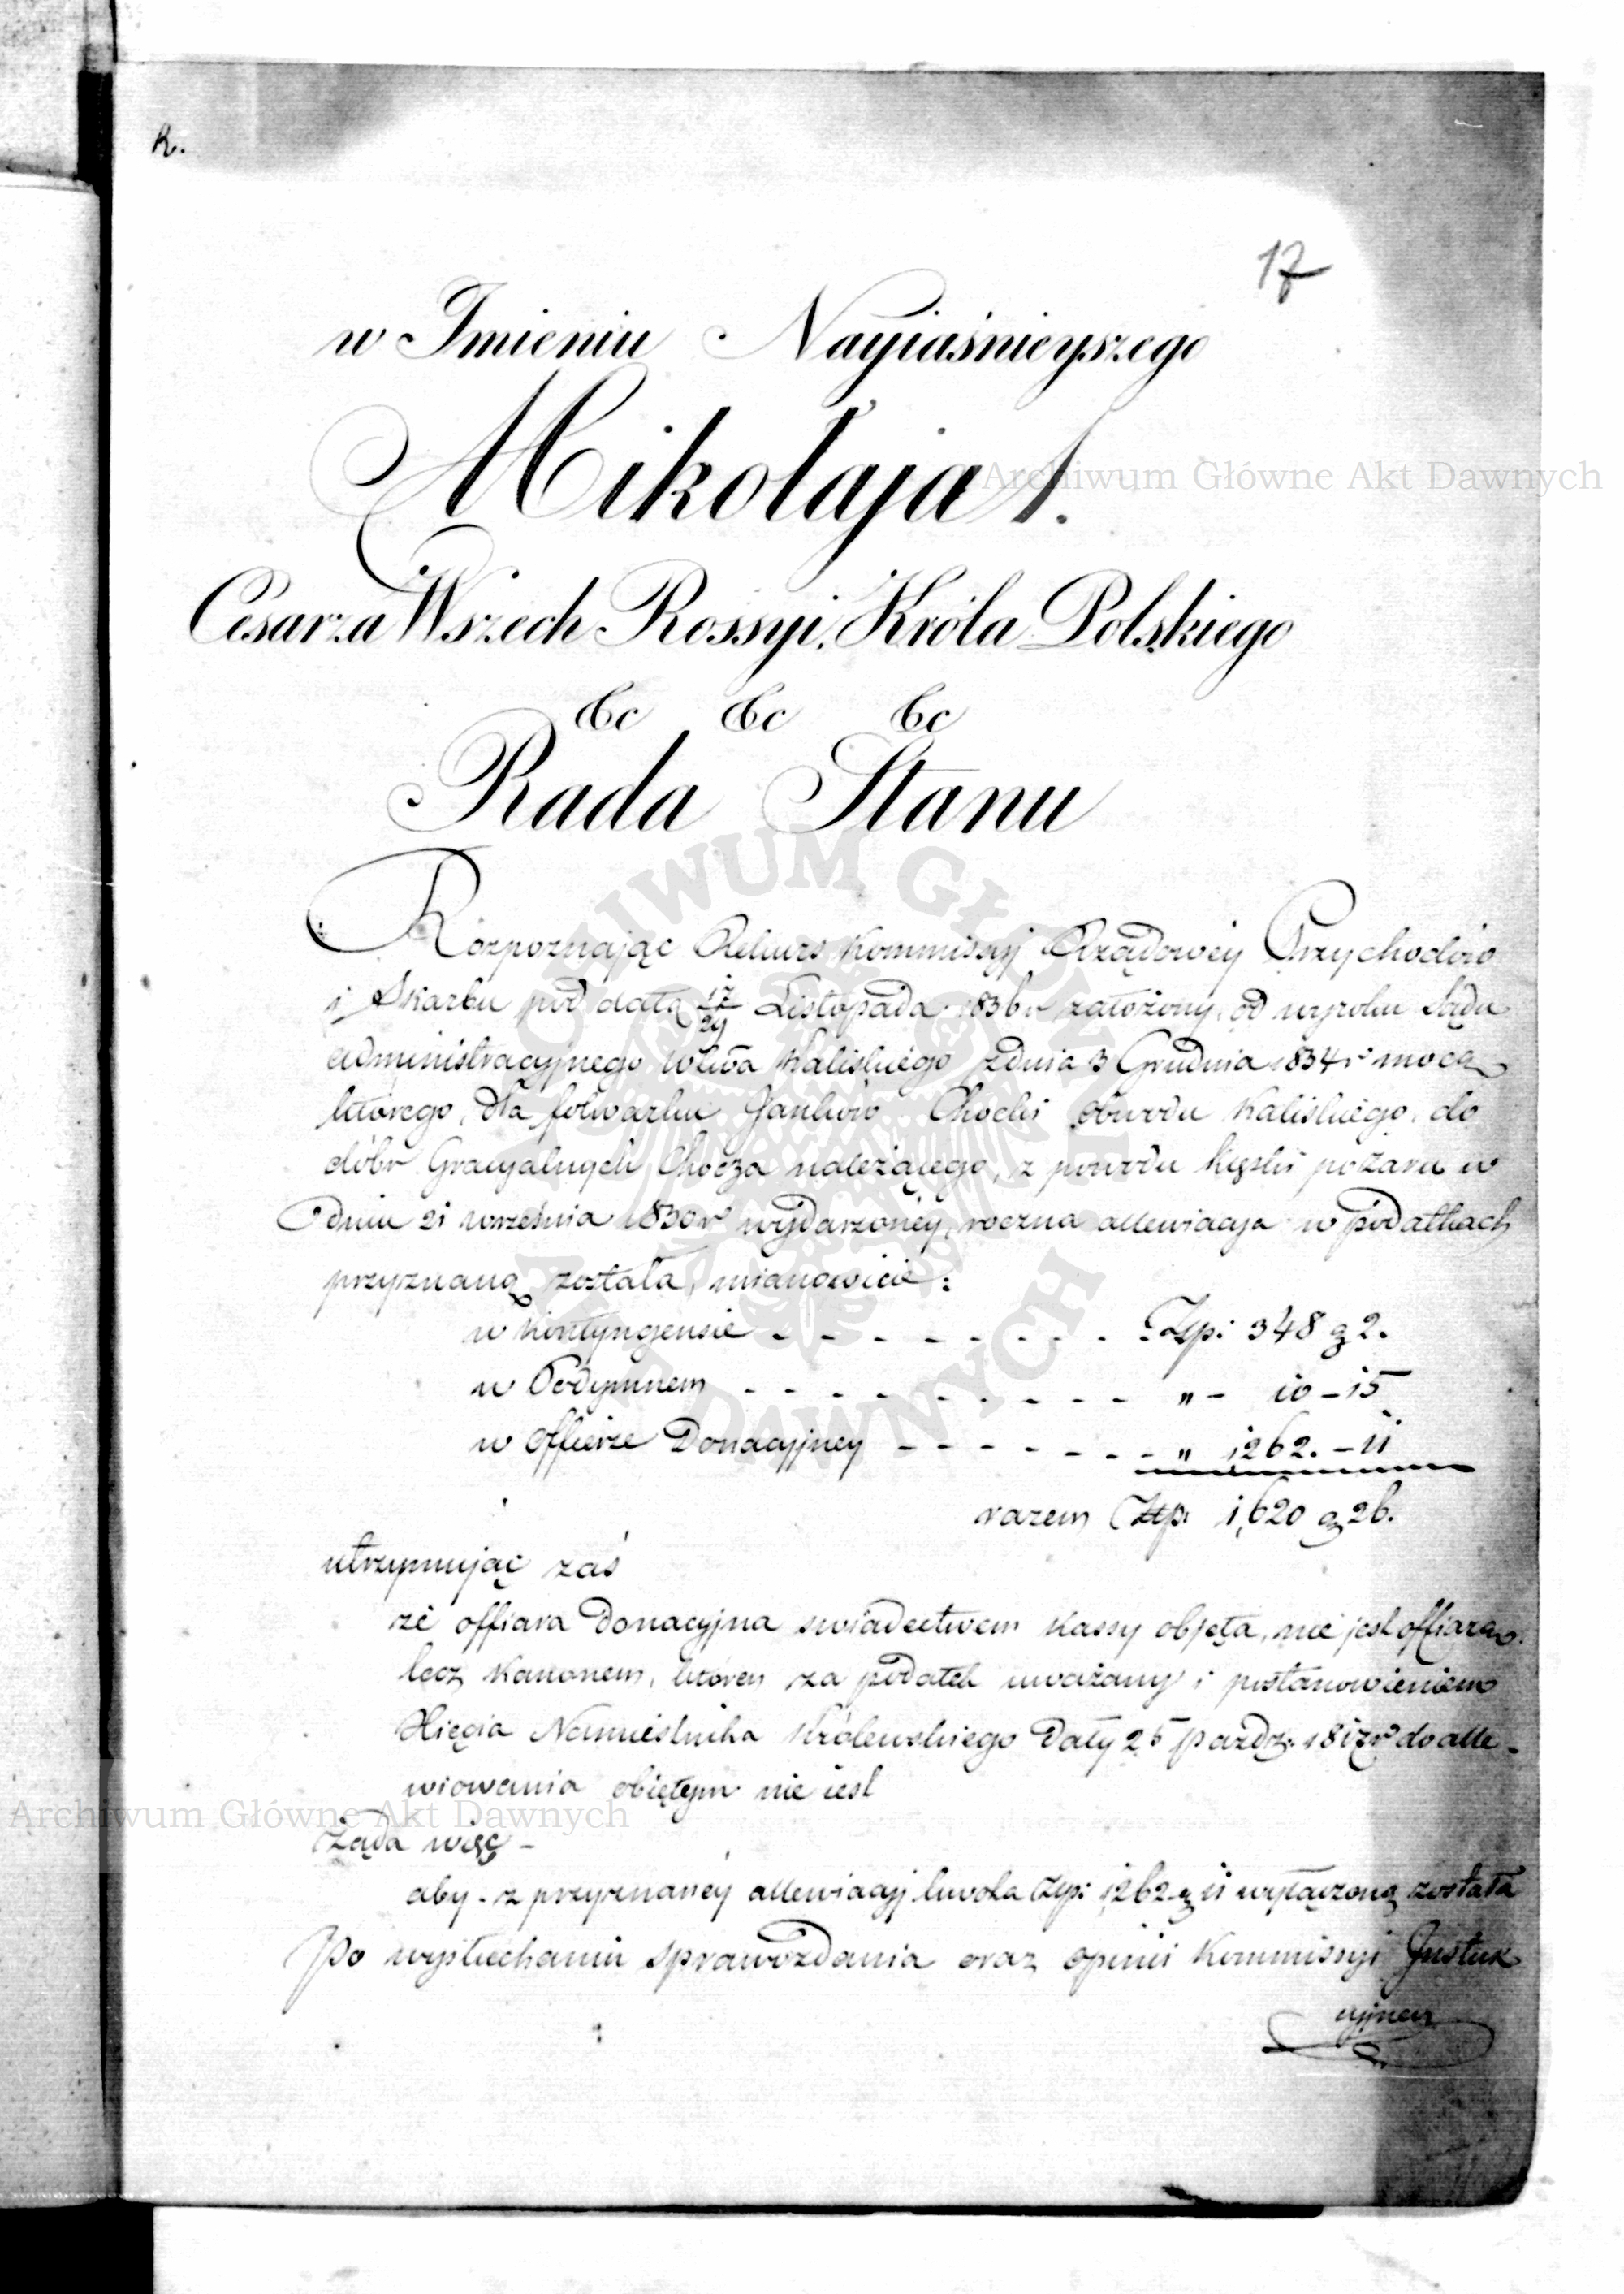 R.
17
w Imieniu Nayiaśnieyszego
Mikołaja I.
Cesarza Wszech Rossyi, Króla Polskiego
&c &c &c
Rada Stanu
Rozpoznając Rekurs Kommissyj Rządowéy Przychodów
i Skarbu pod datą 17/29 Listopada 1836 r założony, od wyroku Sądu
administracyjnego wdztwa Kaliskiego z dnia 3 Grudnia 1834 r mocą
którego, dla folwarku Janków Obwodu Kaliskiego, do
dóbr Gracyalnych Chocza należącego, z powodu klęski pożaru w
dniu 21 września 1830 r wydarzonéy, roczna allewiacya w podatkach
przyznaną została, mianowicie:
w Kontyngensie - - - - - - - - - Złp: 348 g 2.
w Podymnem - - - - - - - - - „ - 10 - 15
w offierze Donacyjney - - - - - - - „ 1262. - 11
razem Złp. 1,620 g 26.
utrzymując zaś
że offiara Donacyjna swiadectwem Kassy objęta, nie jest offiarą
lecz Kanonem, któren za podatek uważany i postanowieniem
Xięcia Namiestnika Królewskiego daty 25 Paźdz: 1817 r do alle-
wiowania obiętym nie iest
Żąda więc -
aby - z przyznanéy allewiacyj kwota Złp: 1262 g 11 wyłączoną została
Po wysłuchaniu sprawozdania oraz opinii Kommissyi Instuk
cyjney
Archiwum Główne Akt Dawnych
Archiwum Główne Akt Dawnych
ARCHIWUM GŁÓWNE AKT DAWNYCH